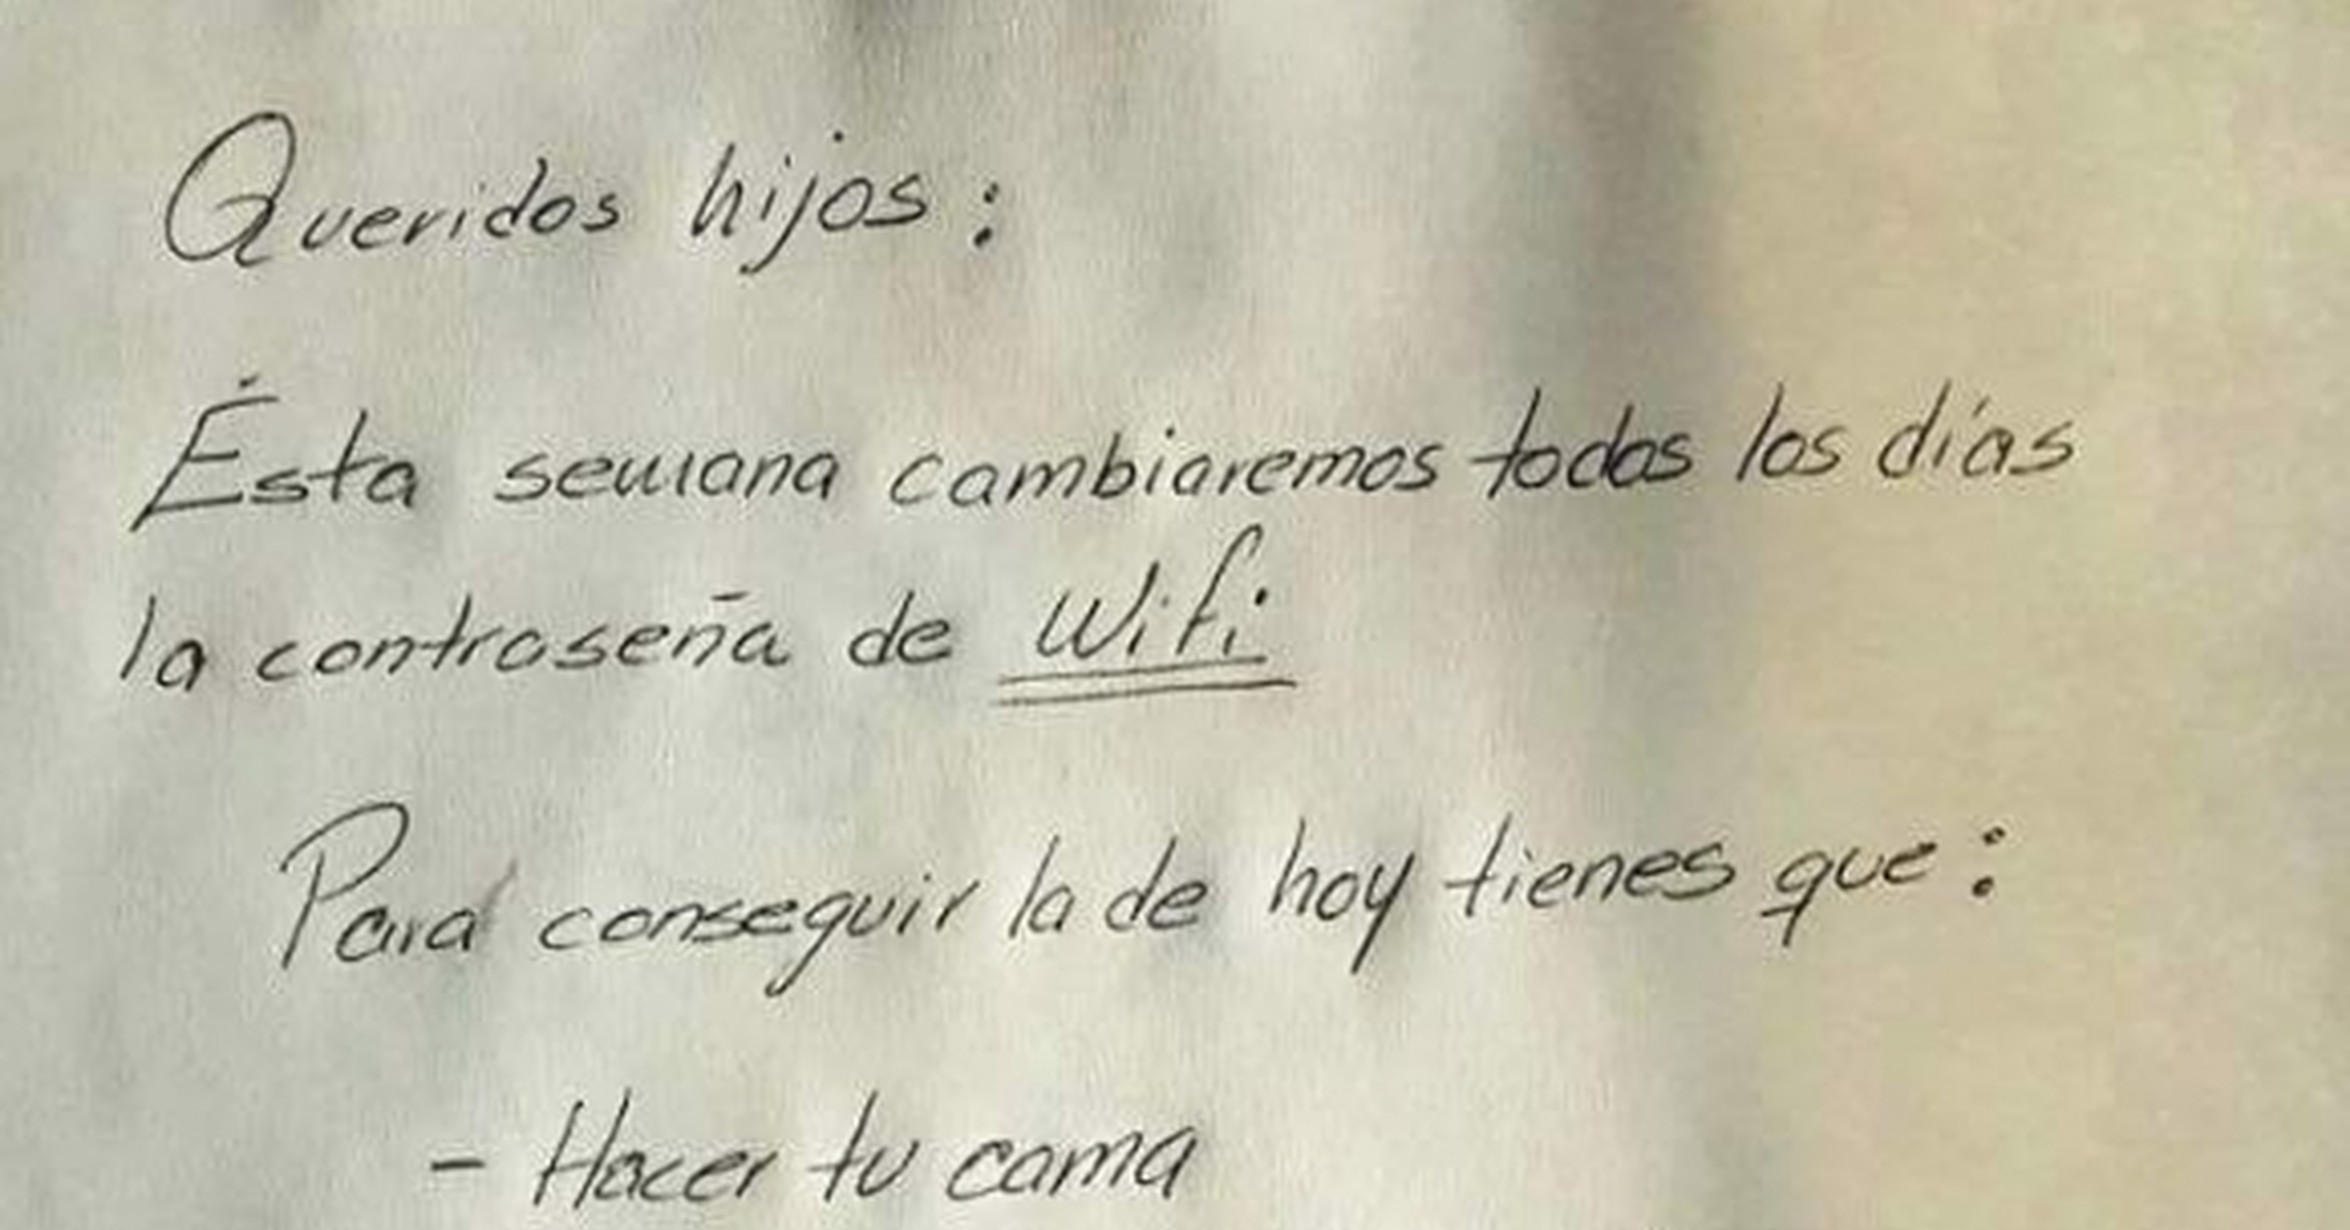 Queridos hijos:
Ésta semana cambiaremos todos los días
la contraseña de Wifi
Para conseguir la de hoy tienes que:
- Hacer tu cama